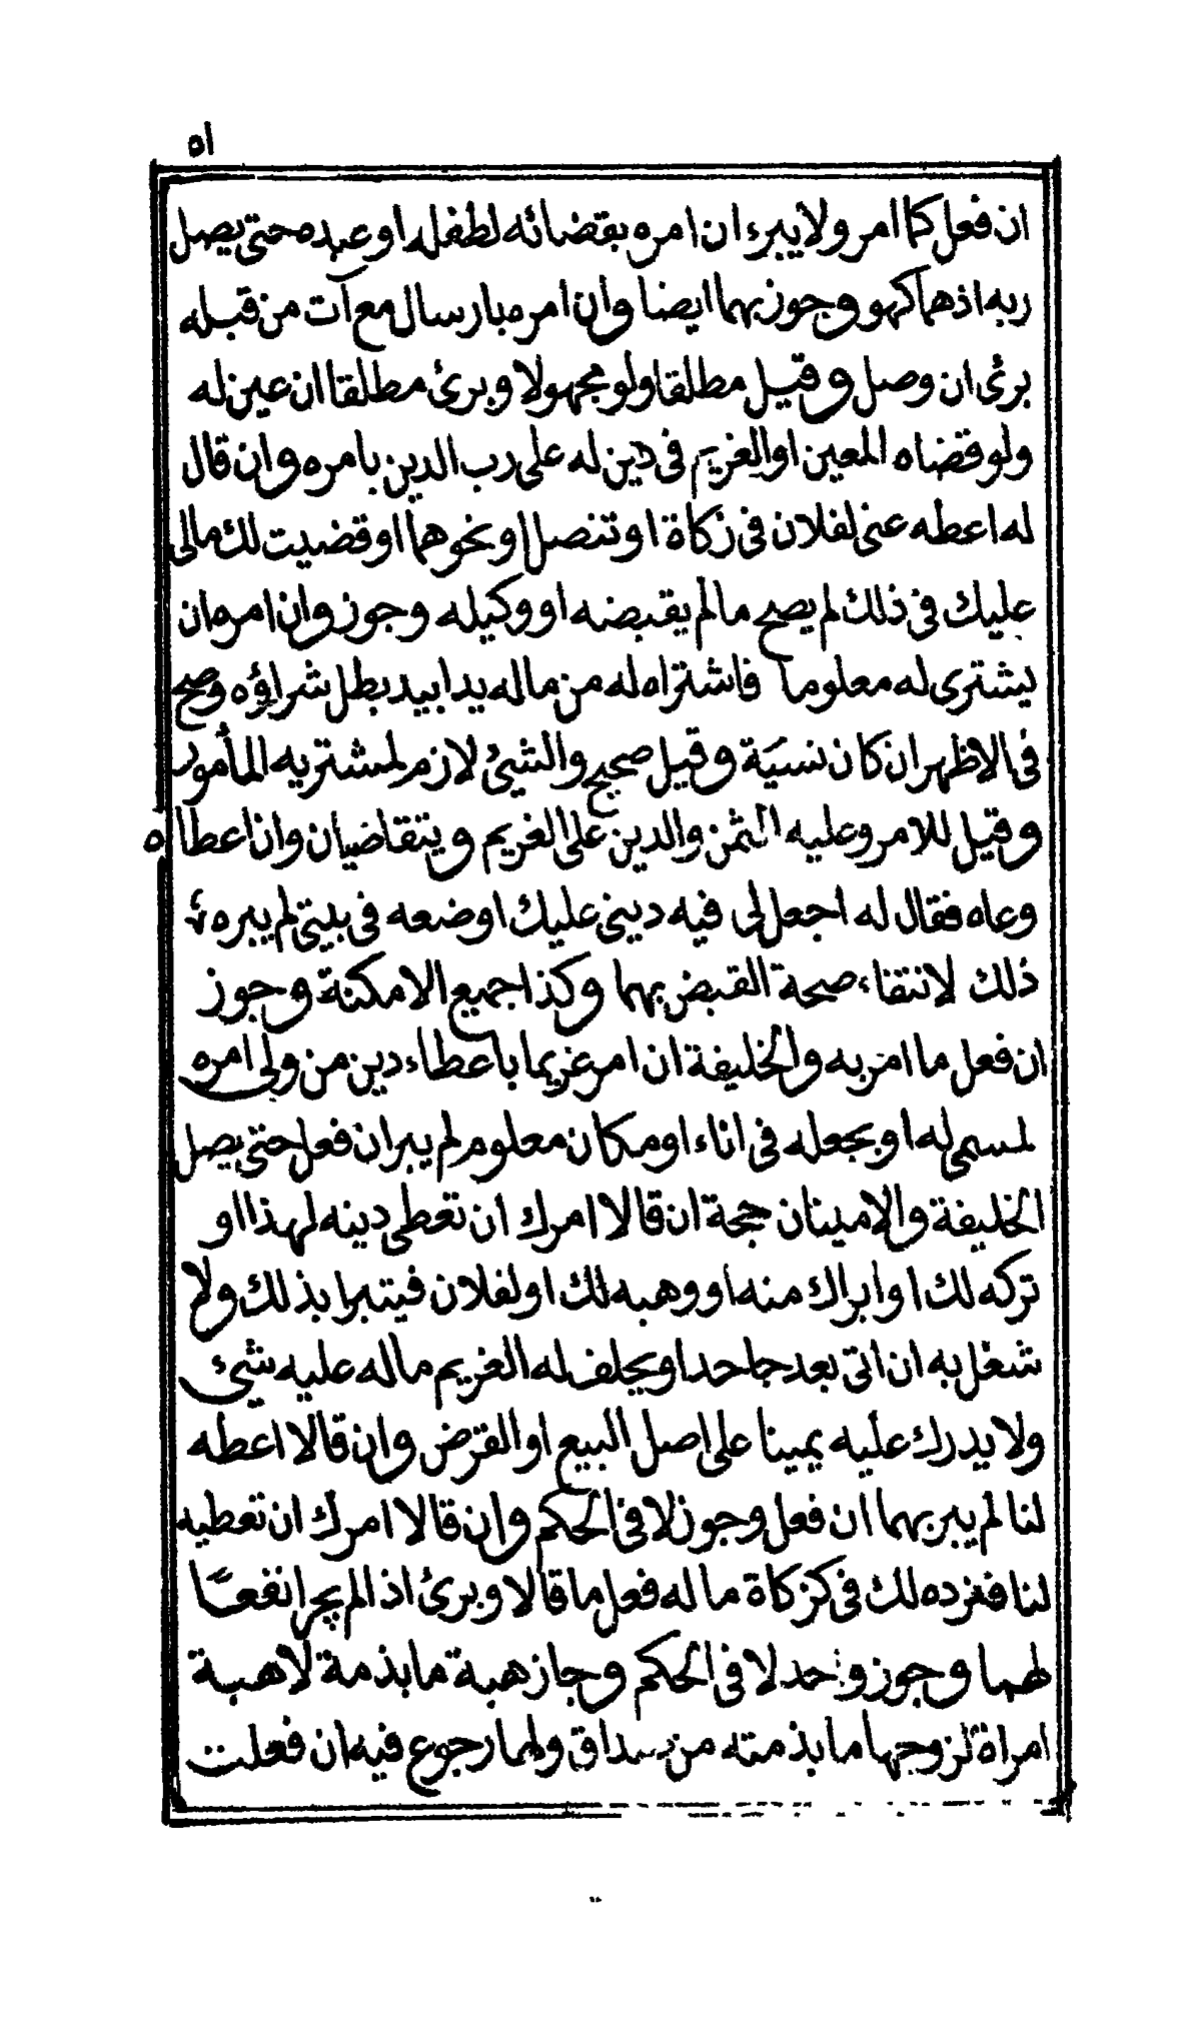 ٥١
ان فعل كما امر ولا يبرء ان امره بقضائه لطفله او عبده حتى يصل
ربه اذ هما كهو وجوز بهما ايضا وان امره بارسال مع آت من قبله
برئ ان وصل وقيل مطلقا ولو مجهولا وبرئ مطلقا ان عين له
ولو قضاه المعين او الغريم فى دين له على رب الدين بامره وان قال
له اعطه عنى لفلان فى زكاة او تنصل او نحوهما او قضيت لك مالى
عليك فى ذلك لم يصح ما لم يقبضه او وكيله وجوز وان امره ان
يشترى له معلوما فاشتراه له من ماله يدا بيد بطل شراؤه وصح
فى الاظهر ان كان نسيَة وقيل صحيح والشئ لازم لمشتريه المأمور
وقيل للامر وعليه الثمن والدين على الغريم ويتقاضيان وان اعطاه
وعاه فقال له اجعل لى فيه دينى عليك او ضعه فى بيتى لم يبره
ذلك لانتفاء صحة القبض بهما وكذا جميع الامكنة وجوز
ان فعل ما امر به والخليفة ان امر غريما باعطاء دين من ولى امره
لمسمى له او بجعله فى اناء او مكان معلوم لم يبر ان فعل حتى يصل
الخليفة والامينان حجة ان قالا امرك ان تعطى دينه لهذا او
تركه لك او ابراك منه او وهبه لك او لفلان فيتبرا بذلك ولا
شغل به ان اتى بعد جاحدا ويحلف له الغريم ماله عليه شئ
ولا يدرك عليه يمينا على اصل البيع او القرض وان قالا اعطه
لنا لم يبر بهما ان فعل وجوز لا فى الحكم وان قالا امرك ان تعطيه
لنا فنرده لك فى كزكاة ماله فعل ما قالا وبرئ اذ الم يجرا نفعًا
لهما وجوز وبحد لا فى الحكم وجاز هبة ما بذمة لا هبة
امراة لزوجها ما بذمته من صداق ولهما رجوع فيه ان فعلت